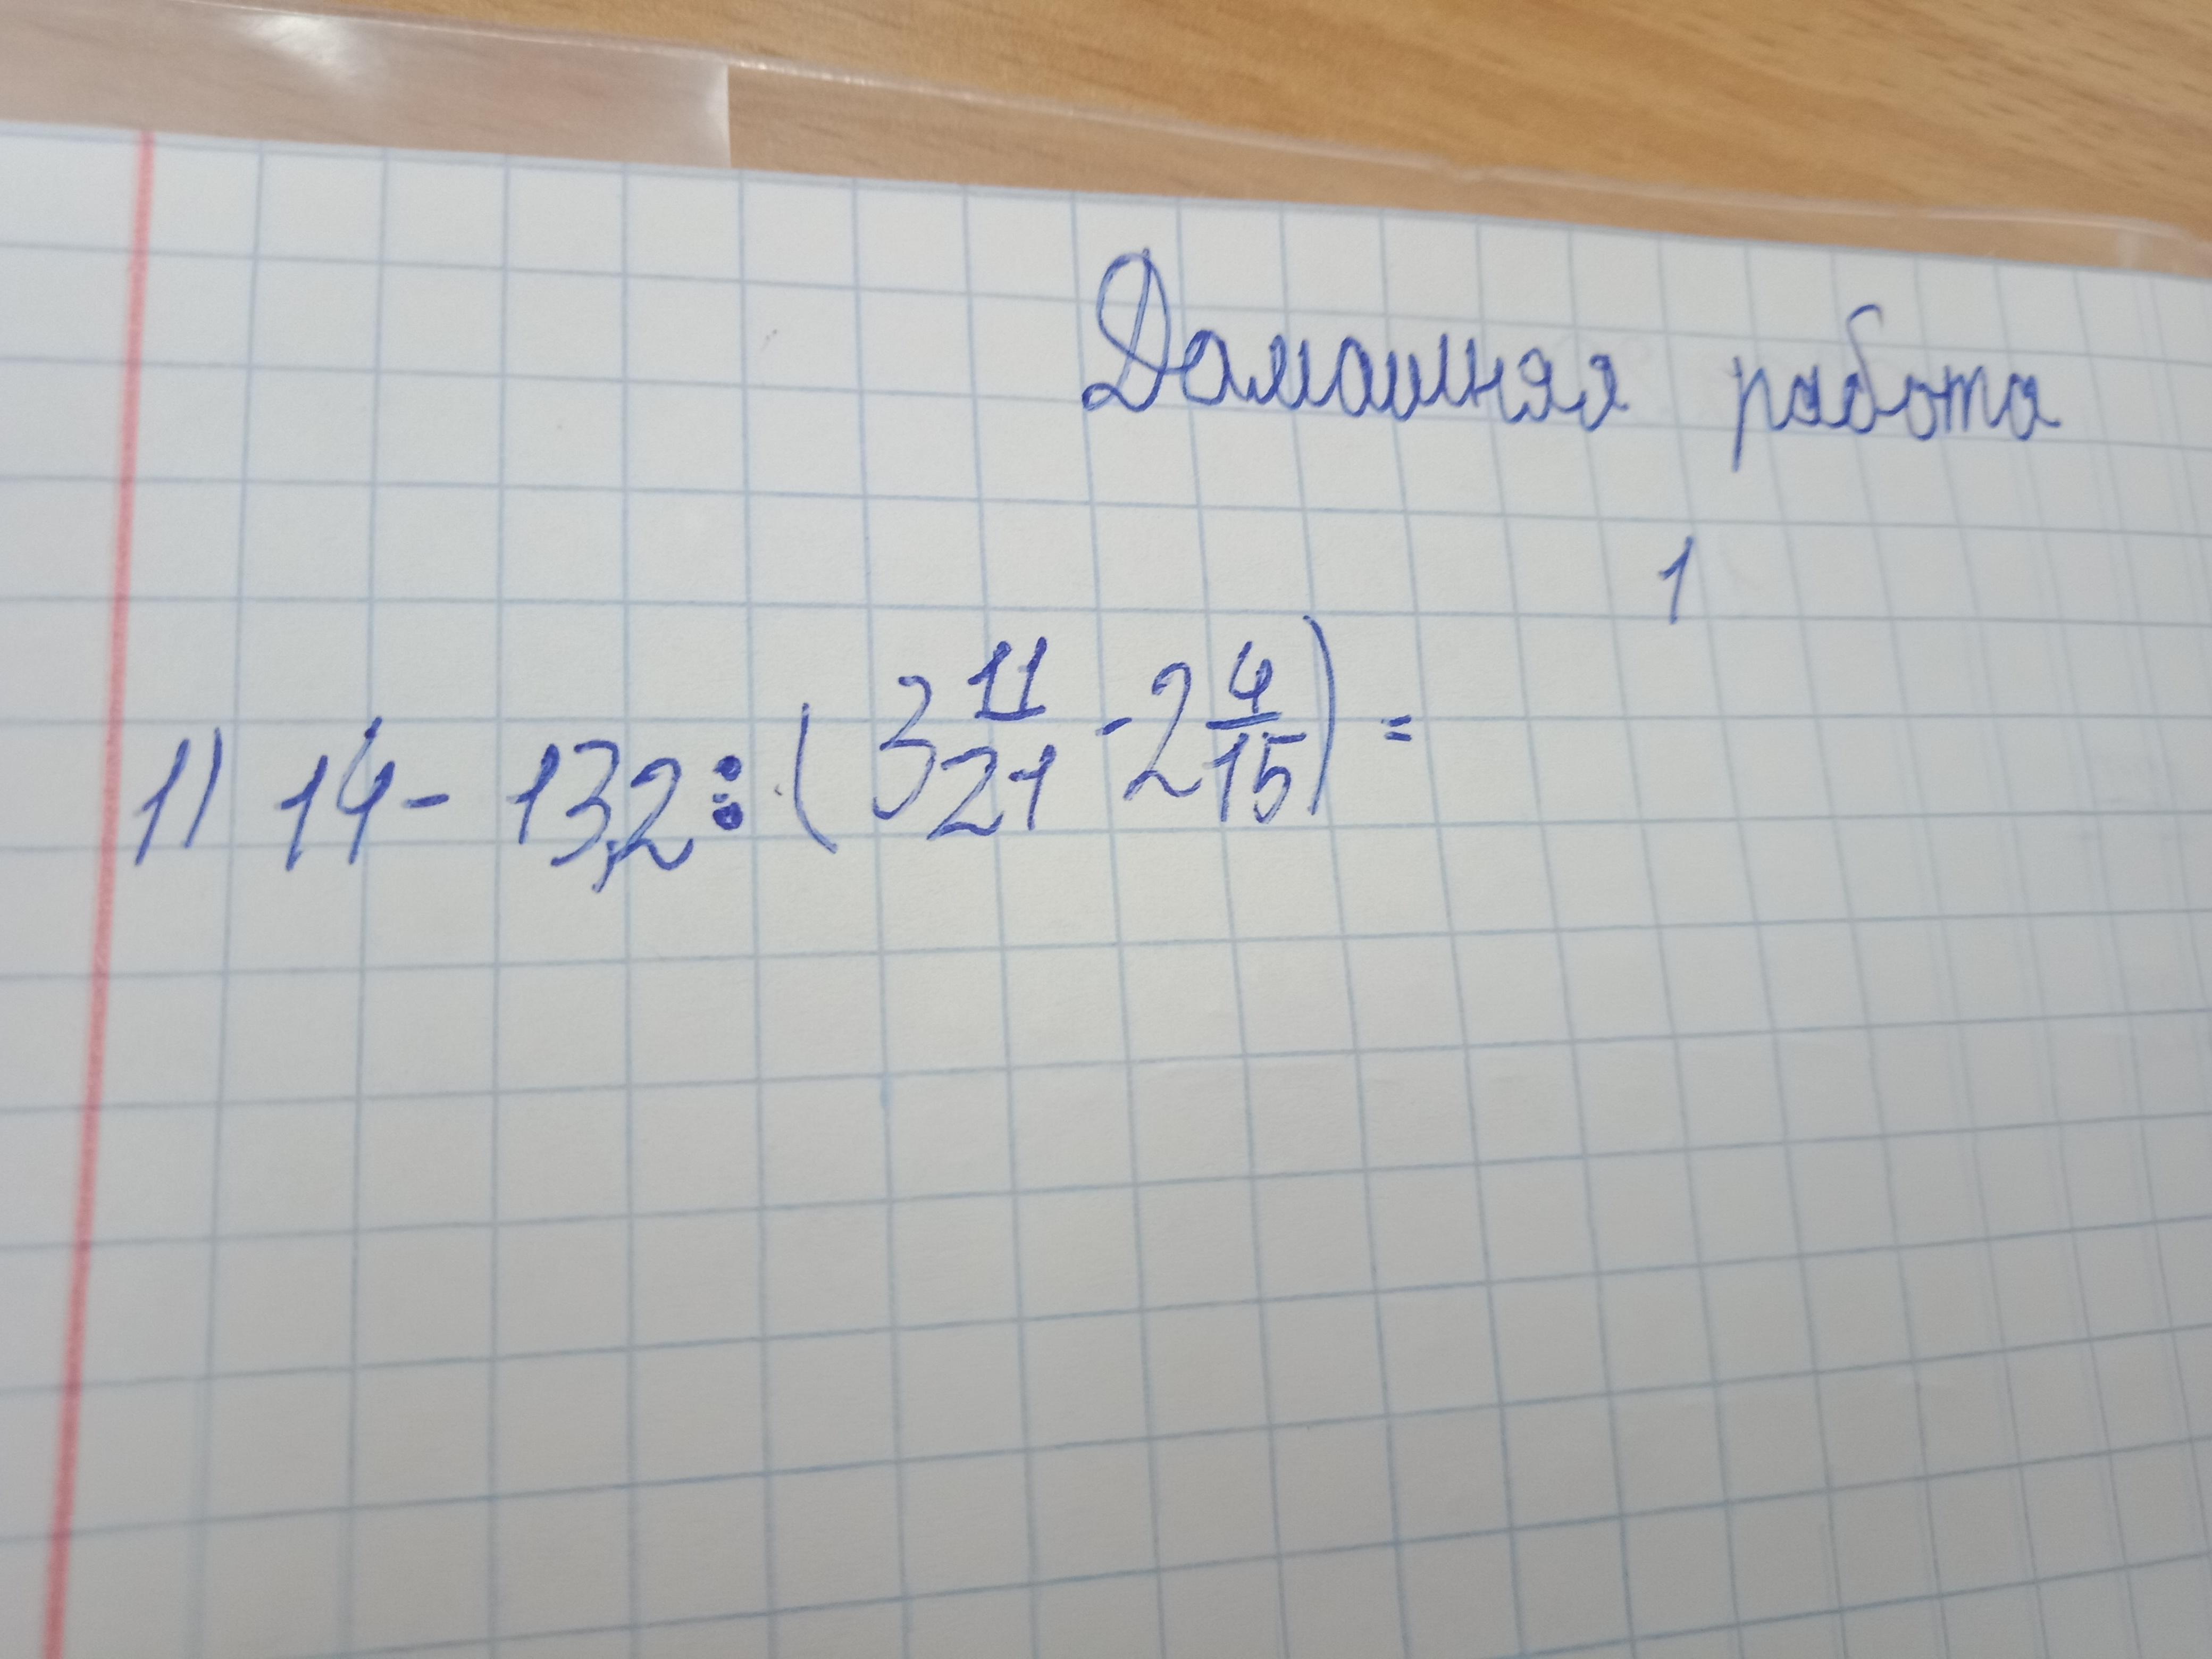 Домашняя работа
1
1) 14 - 13,2 : (3 11/21 - 2 4/15) =